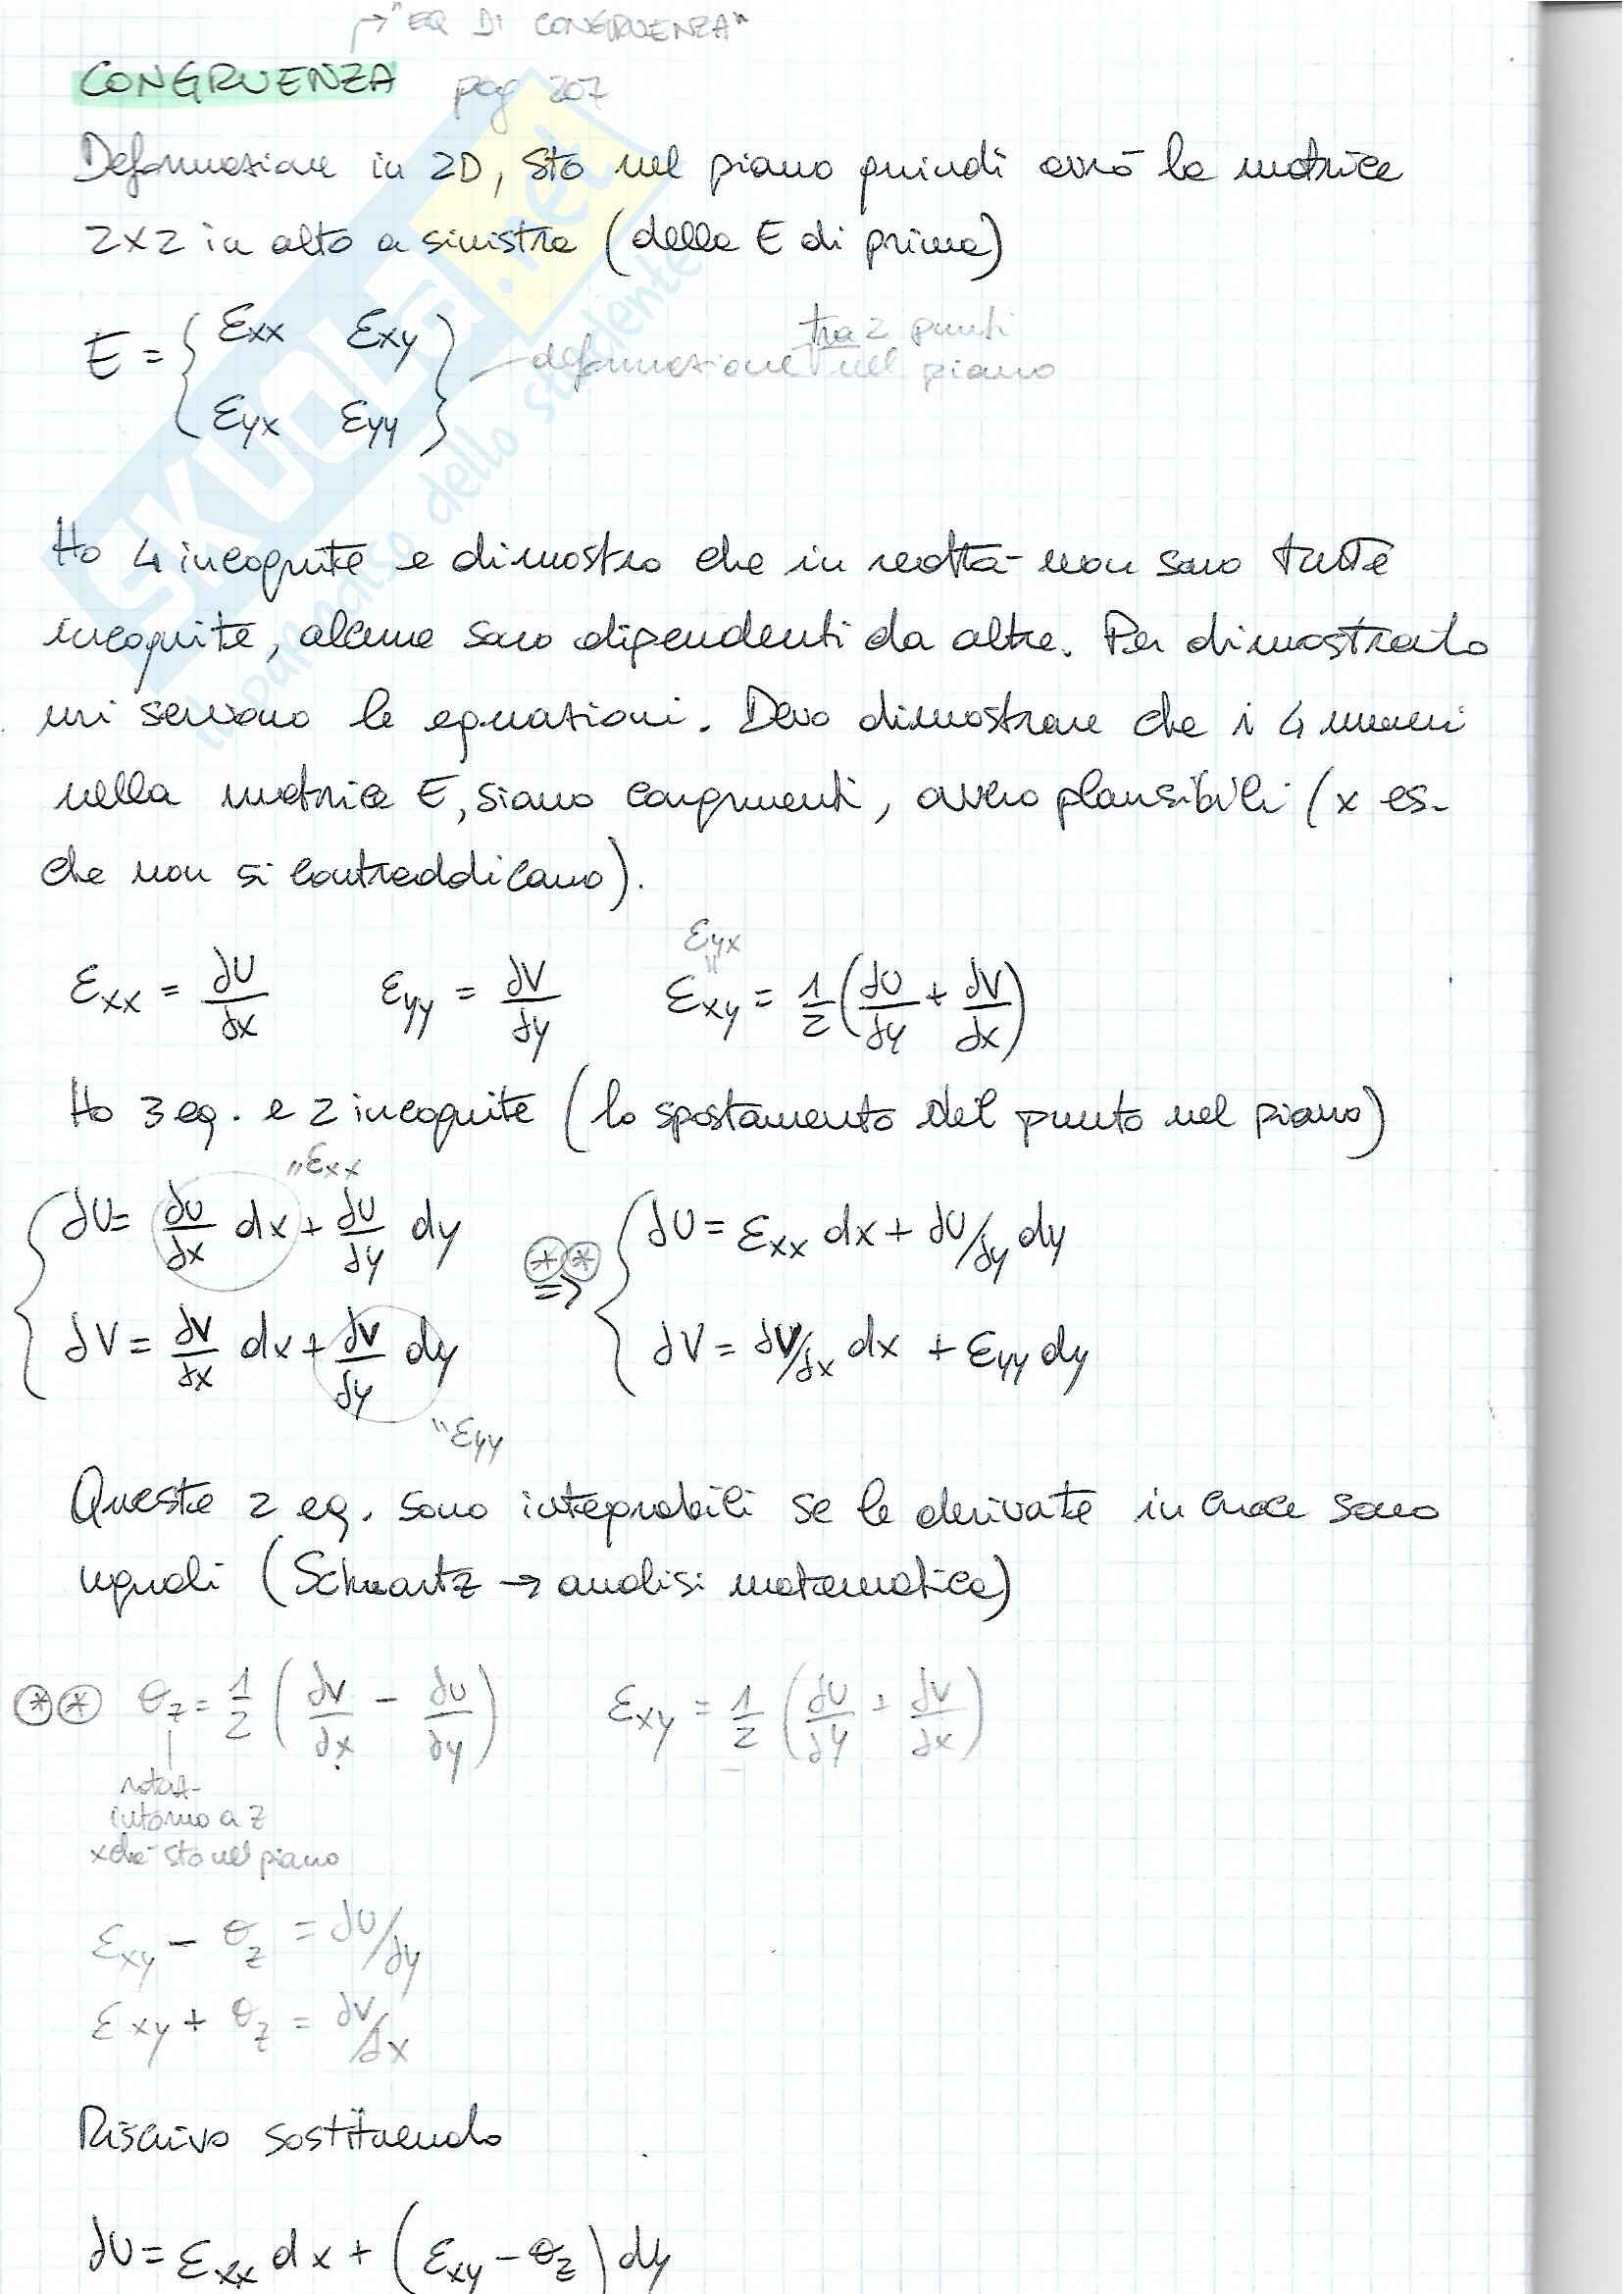 → "EQ DI CONGRUENZA"
CONGRUENZA pag 207
Deformazione in 2D, sto nel piano quindi avrò la matrice
2x2 in alto a sinistra (della E di prima)
E = { εxx εxy
εyx εyy } — deformazione tra 2 punti nel piano
Ho 4 incognite e dimostro che in realtà non sono tutte
incognite, alcune sono dipendenti da altre. Per dimostrarlo
mi servono le equazioni. Devo dimostrare che i 4 numeri
nella matrice E, siano congruenti, ovvero plausibili (x es.
che non si contraddicano).
εxx = ∂U/∂x εyy = ∂V/∂y εyx = εxy = 1/2 (∂U/∂y + ∂V/∂x)
Ho 3 eq. e 2 incognite (lo spostamento del punto nel piano)
"εxx
{ ∂U = ∂U/∂x dx + ∂U/∂y dy ⊛⊛ => { ∂U = εxx dx + ∂U/∂y dy
∂V = ∂V/∂x dx + ∂V/∂y dy ∂V = ∂V/∂x dx + εyy dy
"εyy
Queste 2 eq. sono integrabili se le derivate in croce sono
uguali (Schwartz → analisi matematica)
⊛⊛ θz = 1/2 (∂V/∂x - ∂U/∂y) εxy = 1/2 (∂U/∂y + ∂V/∂x)
rotaz.
intorno a z
xchè sto nel piano
εxy - θz = ∂U/∂y
εxy + θz = ∂V/∂x
Riscrivo sostituendo
∂U = εxx dx + (εxy - θz) dy
SKUOLA.net
il paradiso dello studente